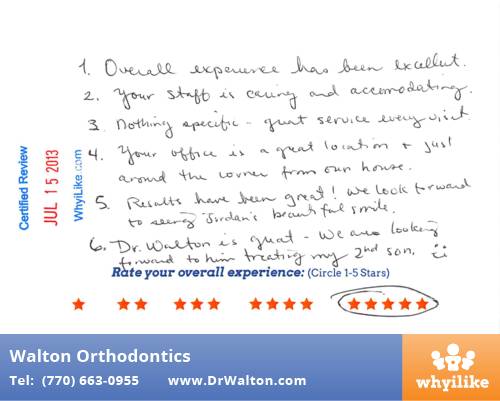 1. Overall experience has been excellent.
2. Your staff is caring and accomodating.
3. Nothing specific - great service every visit
4. Your office is a great location + just
around the corner from our house.
5. Results have been great! We look forward
to seeing Jordan's beautiful smile.
6. Dr. Walton is great - We are looking
forward to him treating my 2nd son.
Certified Review
JUL 15 2013
WhyiLike.com
Rate your overall experience: (Circle 1-5 Stars)
Walton Orthodontics
Tel: (770) 663-0955 www.DrWalton.com
whyilike